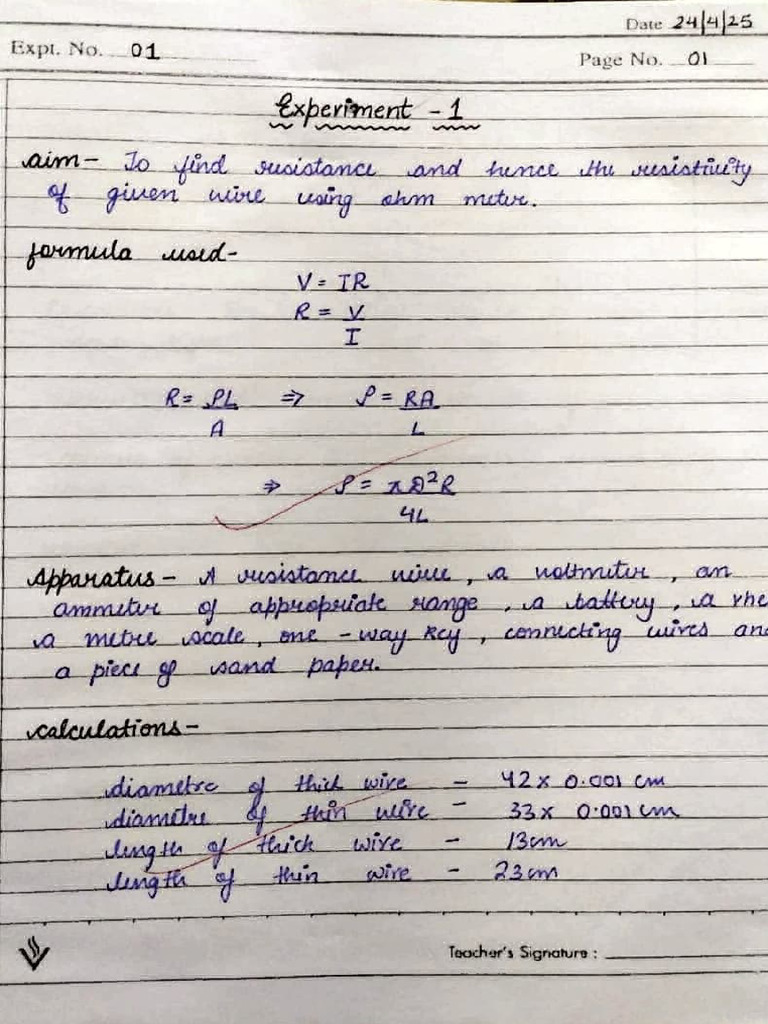 Date 24/4/25
Expt. No. 01
Page No. 01
Experiment - 1
aim - To find resistance and hence the resistivity
of given wire using ohm meter.
formula used -
V = IR
R = V/I
R = ρL/A ⇒ ρ = RA/L
⇒ ρ = πD²R/4L
Apparatus - A resistance wire, a voltmeter, an
ammeter of appropriate range, a battery, a rhe
a metre scale, one-way key, connecting wires an
a piece of sand paper.
calculations -
diametre of thick wire - 42 x 0.001 cm
diametre of thin wire - 33 x 0.001 cm
length of thick wire - 13cm
length of thin wire - 23cm
Teacher's Signature :